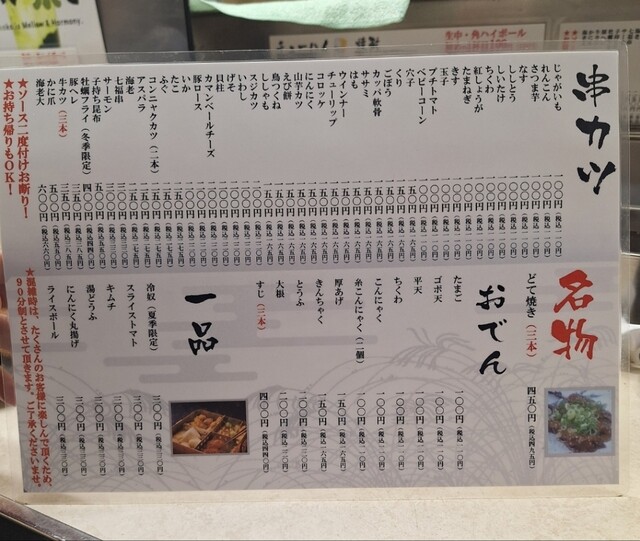 串カツ
じゃがいも 一〇〇円(税込一一〇円)
れんこん 一〇〇円(税込一一〇円)
さつま芋 一〇〇円(税込一一〇円)
なす 一〇〇円(税込一一〇円)
ししとう 一〇〇円(税込一一〇円)
しいたけ 一〇〇円(税込一一〇円)
ちくわ 一〇〇円(税込一一〇円)
紅しょうが 一〇〇円(税込一一〇円)
たまねぎ 一〇〇円(税込一一〇円)
きす 一〇〇円(税込一一〇円)
玉子 一〇〇円(税込一一〇円)
プチトマト 一〇〇円(税込一一〇円)
ベビーコーン 一〇〇円(税込一一〇円)
穴子 一五〇円(税込一六五円)
くり 一五〇円(税込一六五円)
ごぼう 一五〇円(税込一六五円)
カッパ軟骨 一五〇円(税込一六五円)
ササミ 一五〇円(税込一六五円)
はも 一五〇円(税込一六五円)
ウインナー 一五〇円(税込一六五円)
チューリップ 一五〇円(税込一六五円)
コロッケ 一五〇円(税込一六五円)
にんにく 一五〇円(税込一六五円)
山芋カツ 一五〇円(税込一六五円)
えび餅 一五〇円(税込一六五円)
鳥つくね 一五〇円(税込一六五円)
ししゃも 一五〇円(税込一六五円)
スジカツ 二〇〇円(税込二二〇円)
いわし 二〇〇円(税込二二〇円)
げそ 二〇〇円(税込二二〇円)
貝柱 二〇〇円(税込二二〇円)
カマンベールチーズ 二〇〇円(税込二二〇円)
豚ロース 二〇〇円(税込二二〇円)
いか 二〇〇円(税込二二〇円)
たこ 二五〇円(税込二七五円)
ふぐ 二五〇円(税込二七五円)
コンニャクカツ(二本) 二五〇円(税込二七五円)
アスパラ 二五〇円(税込二七五円)
海老 二五〇円(税込二七五円)
七福串 三〇〇円(税込三三〇円)
サーモン 三〇〇円(税込三三〇円)
子持ち昆布 五〇〇円(税込五五〇円)
牡蠣フライ(冬季限定) 四〇〇円(税込四四〇円)
豚ヘレ 三五〇円(税込三八五円)
牛カツ(三本) 三五〇円(税込三八五円)
かに爪 五〇〇円(税込五五〇円)
海老大 六〇〇円(税込六六〇円)
★ソース二度付けお断り!
★お持ち帰りもOK!
名物
どて焼き(三本) 四五〇円(税込四九五円)
おでん
たまご 一〇〇円(税込一一〇円)
ゴボ天 一〇〇円(税込一一〇円)
平天 一〇〇円(税込一一〇円)
ちくわ 一〇〇円(税込一一〇円)
こんにゃく 一〇〇円(税込一一〇円)
糸こんにゃく(二個) 一〇〇円(税込一一〇円)
厚あげ 一五〇円(税込一六五円)
きんちゃく 一五〇円(税込一六五円)
とうふ 二〇〇円(税込二二〇円)
大根 二〇〇円(税込二二〇円)
すじ(三本) 四〇〇円(税込四四〇円)
一品
冷奴(夏季限定) 三〇〇円(税込三三〇円)
スライストマト 三〇〇円(税込三三〇円)
キムチ 三〇〇円(税込三三〇円)
湯どうふ 三〇〇円(税込三三〇円)
にんにく丸揚げ 三〇〇円(税込三三〇円)
ライスボール 三〇〇円(税込三三〇円)
★混雑時は、たくさんのお客様に楽しんで頂くため、
90分制とさせて頂きます。ご了承くださいませ。
生中・角ハイボール
Mellow & Harmony.